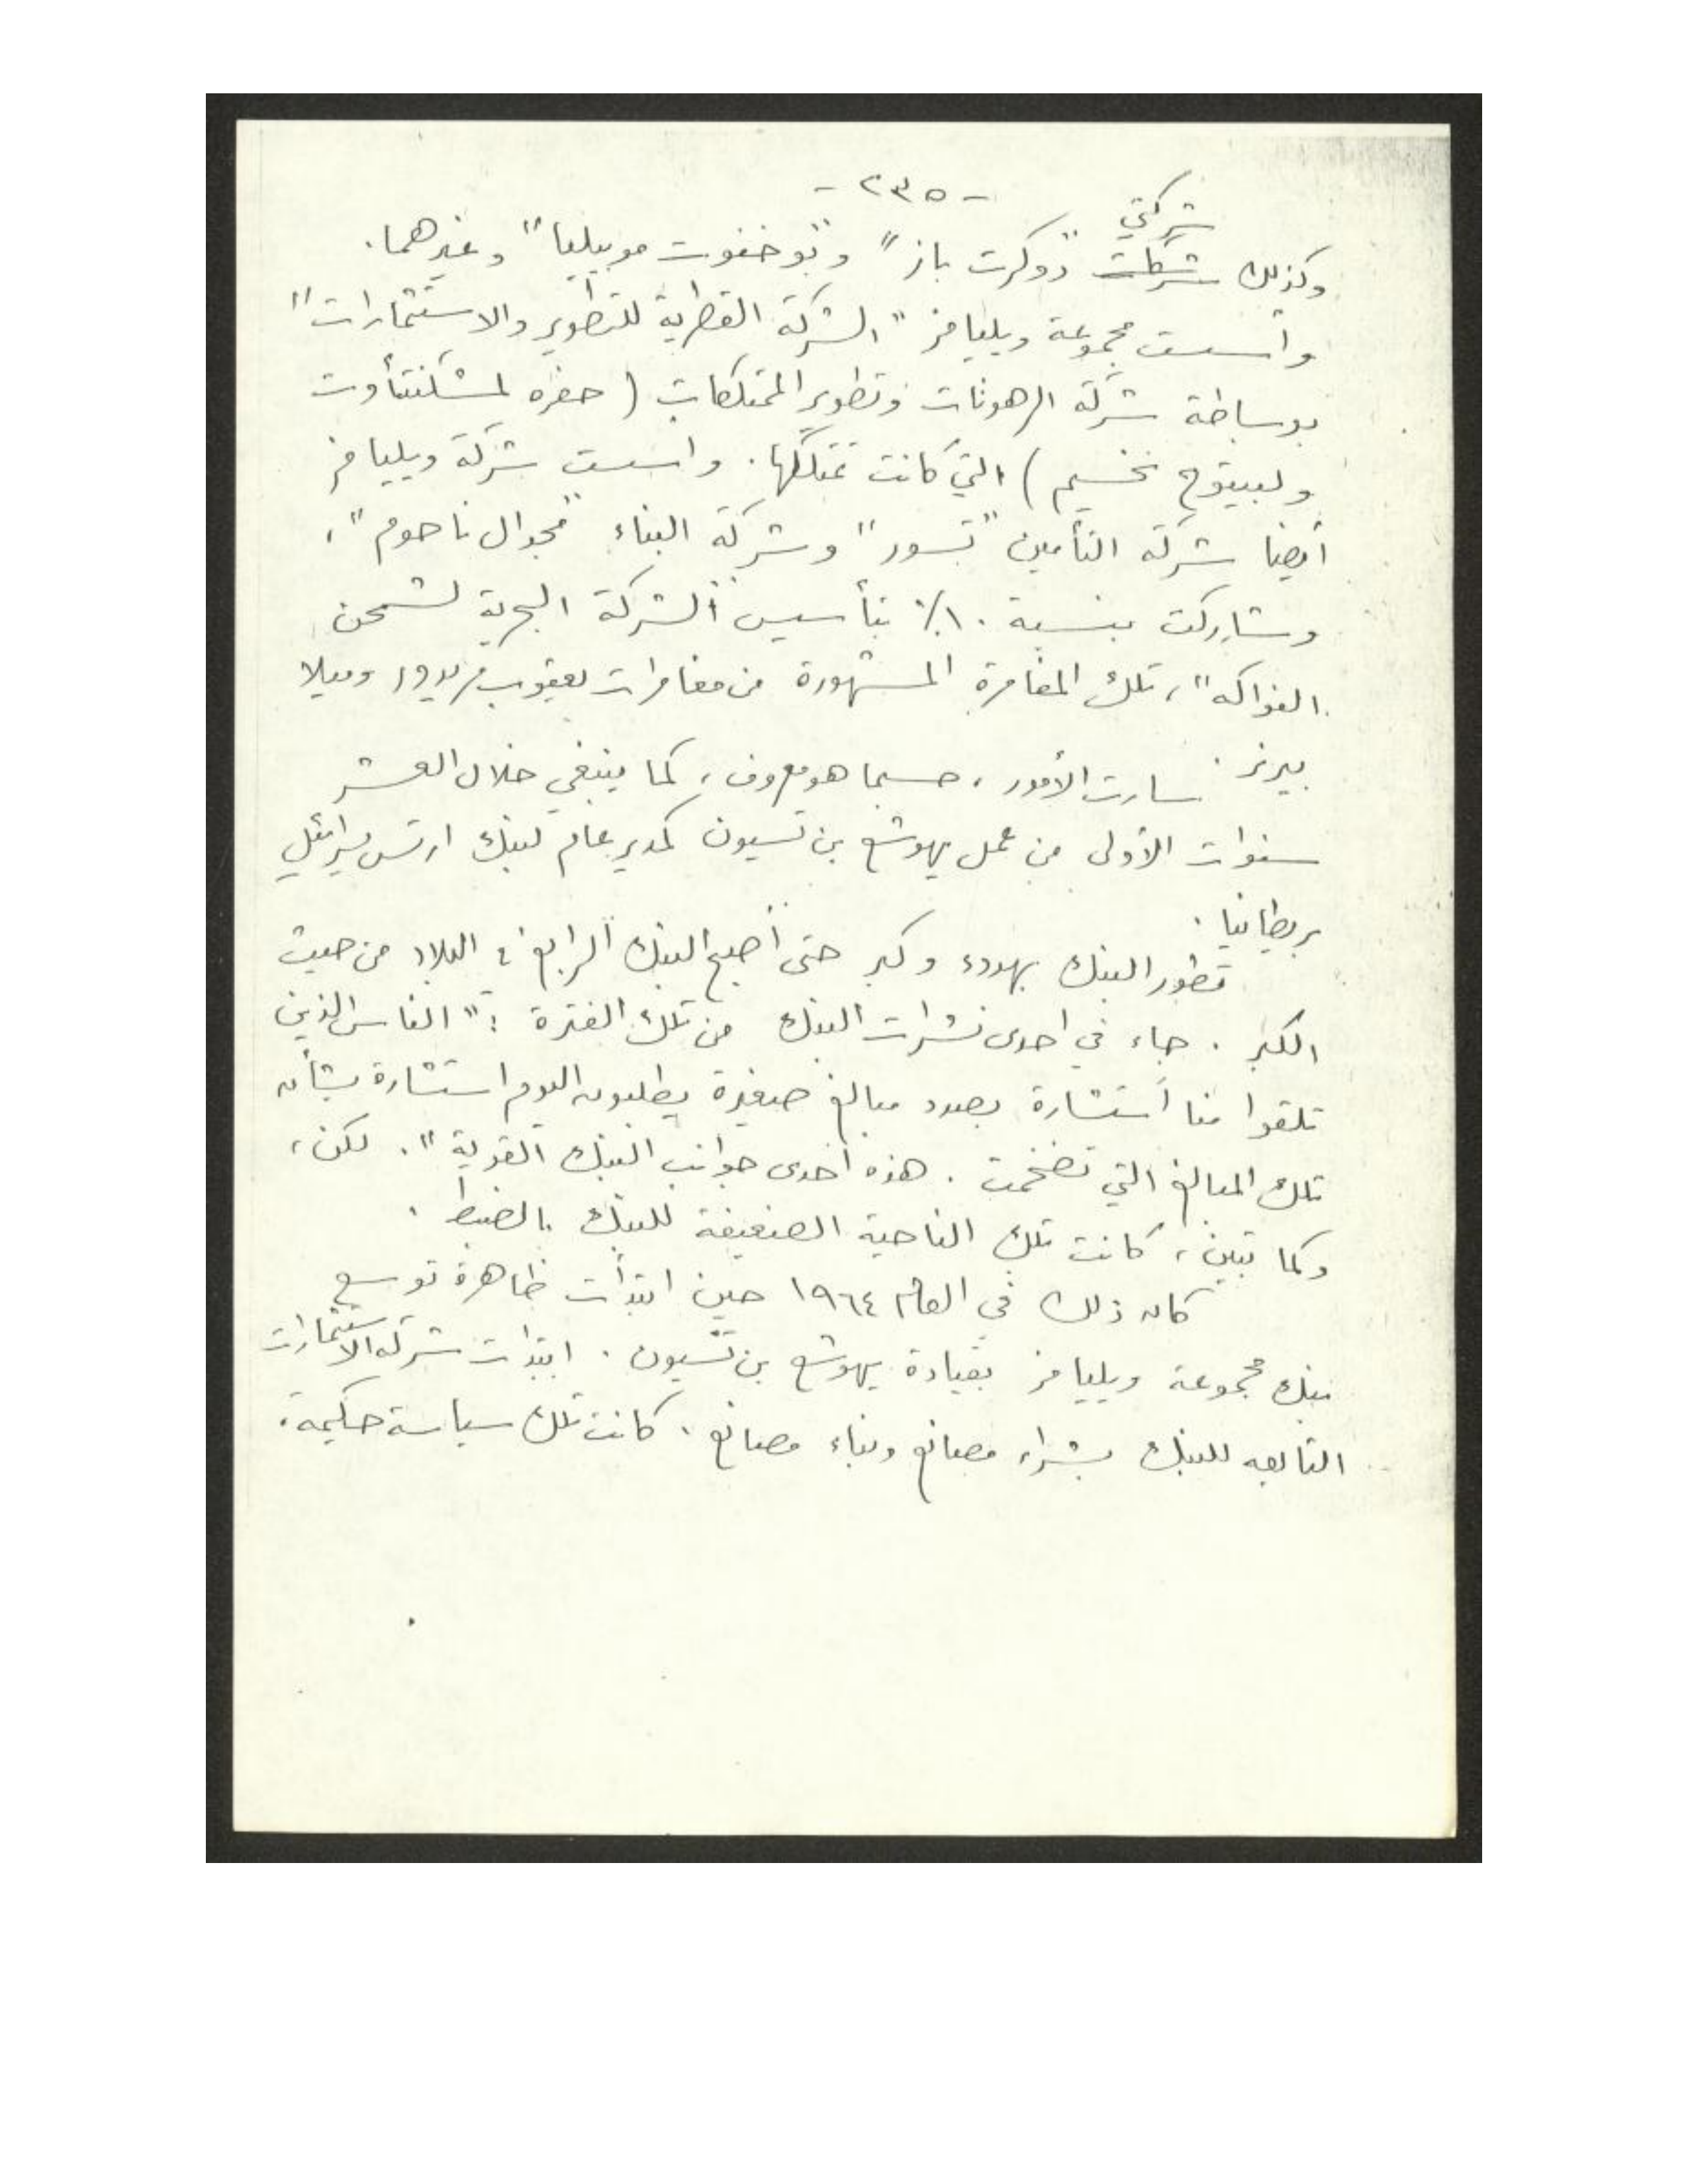 - ٢٣٥ -
شركتي
وكذلك شركات "دوكرت باز" و"بوخفوت موبيليا" وغيرهما.
وأسست مجموعة ويليامز "الشركة القطرية للتطوير والاستثمارات"
بوساطة شركة الرهونات وتطوير الممتلكات (حفره لمشكنتأوت
ولبيتوح نخسيم) التي كانت تمتلكها. واسست شركة ويليامز
أيضا شركة التأمين "تسور" وشركة البناء "مجدال ناحوم"،
وشاركت بنسبة ١٠٪ بتأسيس "الشركة البحرية لشحن
الفواكه"، تلك المغامرة المشهورة من مغامرات يعقوب مريدور وميلا
بيرنر.
سارت الأمور، حسبما هو معروف، كما ينبغي خلال العشر
سنوات الأولى من عمل يهوشع بن تسيون كمدير عام لبنك ارتس يسرائيل
بريطانيا.
تطور البنك بهدوء وكبر حتى أصبح البنك الرابع في البلاد من حيث
الكبر. جاء في احدى نشرات البنك من تلك الفترة: "الناس الذين
تلقوا منا استشارة بصدد مبالغ صغيرة يطلبون اليوم استشارة بشأن
تلك المبالغ التي تضخمت. هذه احدى جوانب البنك القوية". لكن،
وكما تبين، كانت تلك الناحية الضعيفة للبنك بالضبط.
كان ذلك في العام ١٩٦٤ حين ابتدأت ظاهرة توسع
بنك مجموعة ويليامز بقيادة يهوشع بن تسيون. ابتدأت شركة الاستثمارات
التابعه للبنك بشراء مصانع وبناء مصانع. كانت تلك سياسة حكيمة.